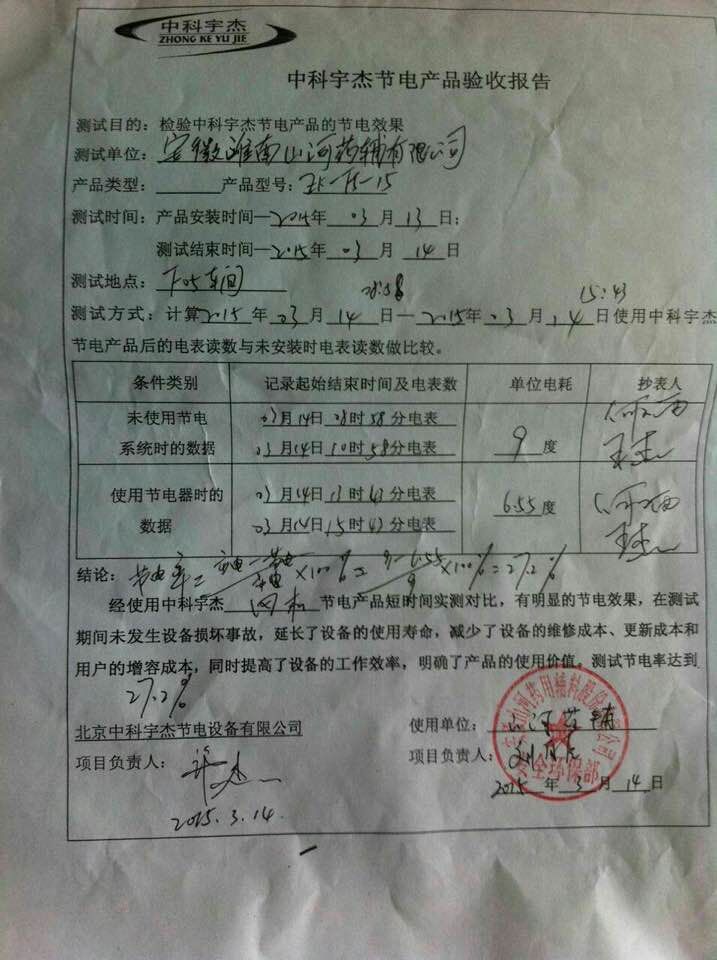 中科宇杰
ZHONG KE YU JIE
中科宇杰节电产品验收报告
测试目的：检验中科宇杰节电产品的节电效果
测试单位：安徽淮南山河药辅有限公司
产品类型： 产品型号：
测试时间：产品安装时间—2015年 03 月 13 日；
测试结束时间—2015年 03 月 14 日
测试地点：车间
08:58 15:43
测试方式：计算2015 年 03 月 14 日—2015年 03 月 14 日使用中科宇杰
节电产品后的电表读数与未安装时电表读数做比较。
条件类别 记录起始结束时间及电表数 单位电耗 抄表人
未使用节电 03月14日 08时58分电表
系统时的数据 03月14日10时58分电表 9 度
使用节电器时的 03月14日13时43分电表 6.55度
数据 03月14日15时43分电表
结论：节电率= ×100%= 9-6.55/9 ×100%=27.2%
经使用中科宇杰 节电产品短时间实测对比，有明显的节电效果，在测试
期间未发生设备损坏事故，延长了设备的使用寿命，减少了设备的维修成本、更新成本和
用户的增容成本，同时提高了设备的工作效率，明确了产品的使用价值。测试节电率达到
27.2%
北京中科宇杰节电设备有限公司 使用单位：山河药辅
项目负责人： 项目负责人：
2015.3.14. 2015 年 3 月 14 日
山河药用辅料股份有限公司
安全环保部